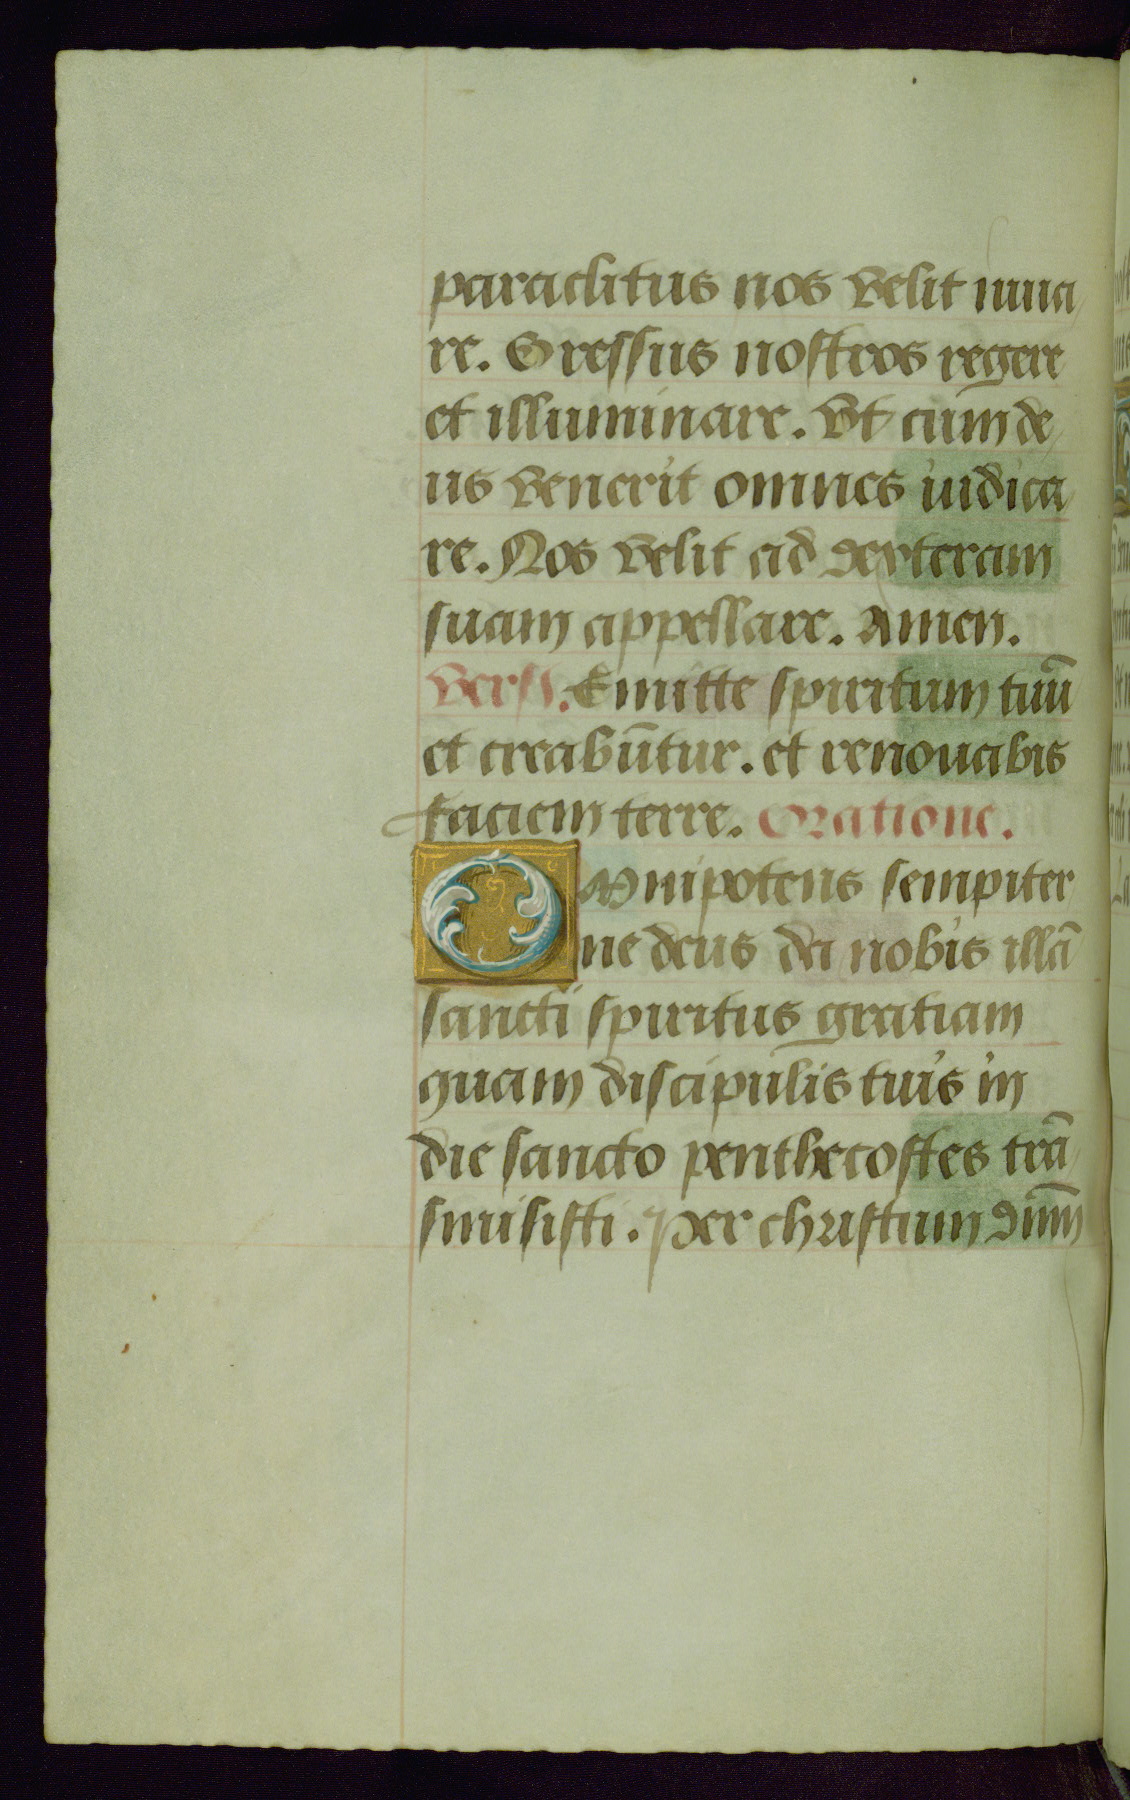 paraclitus nos velit iuua
re. Gressus nostros regere
et illuminare. Vt cum de
us venerit omnes iudica
re. Nos velit ad dexteram
suam appellare. Amen.
Vers. Emitte spiritum tuū
et creabūtur. et renouabis
faciem terre. Oratione.
Omnipotens sempiter
ne deus da nobis illā
sancti spiritus gratiam
quam discipulis tuis in
die sancto penthecostes trā
smisisti. Per christum dnm̄